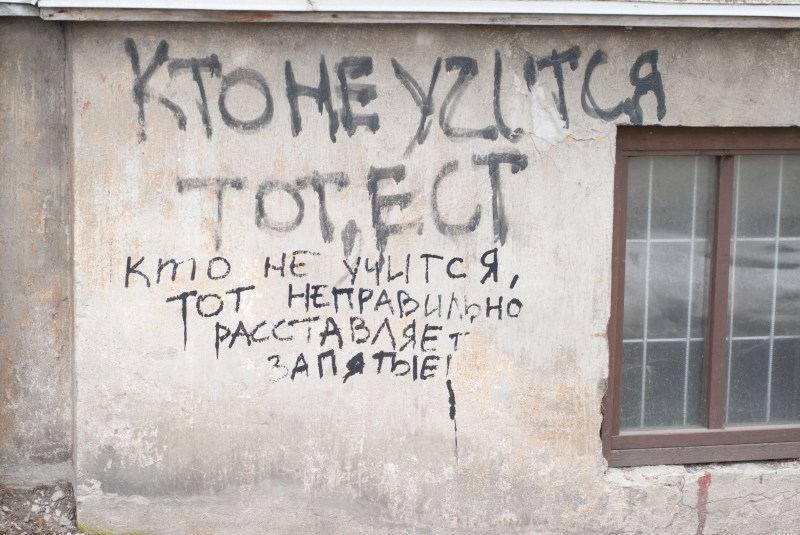 КТО НЕ УЧИТСЯ
ТОТ, ЕСТ
КТО НЕ УЧИТСЯ,
ТОТ НЕПРАВИЛЬНО
РАССТАВЛЯЕТ
ЗАПЯТЫЕ!